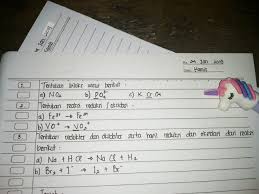 Jan 2019
Kamis
1. Tentukan biloks unsur berikut
a) NO₃ b) PO₄ c) K
2. Tentukan reaksi reduksi / oksidasi
a) Fe → Fe
b) VO → VO₂
3. Tentukan reduktor dan oksidator serta hasil reduksi dan oksidasi dari reaksi
berikut :
a) Na + HCl → NaCl + H₂
b) Br₂ + I⁻ → I₂ + Br⁻